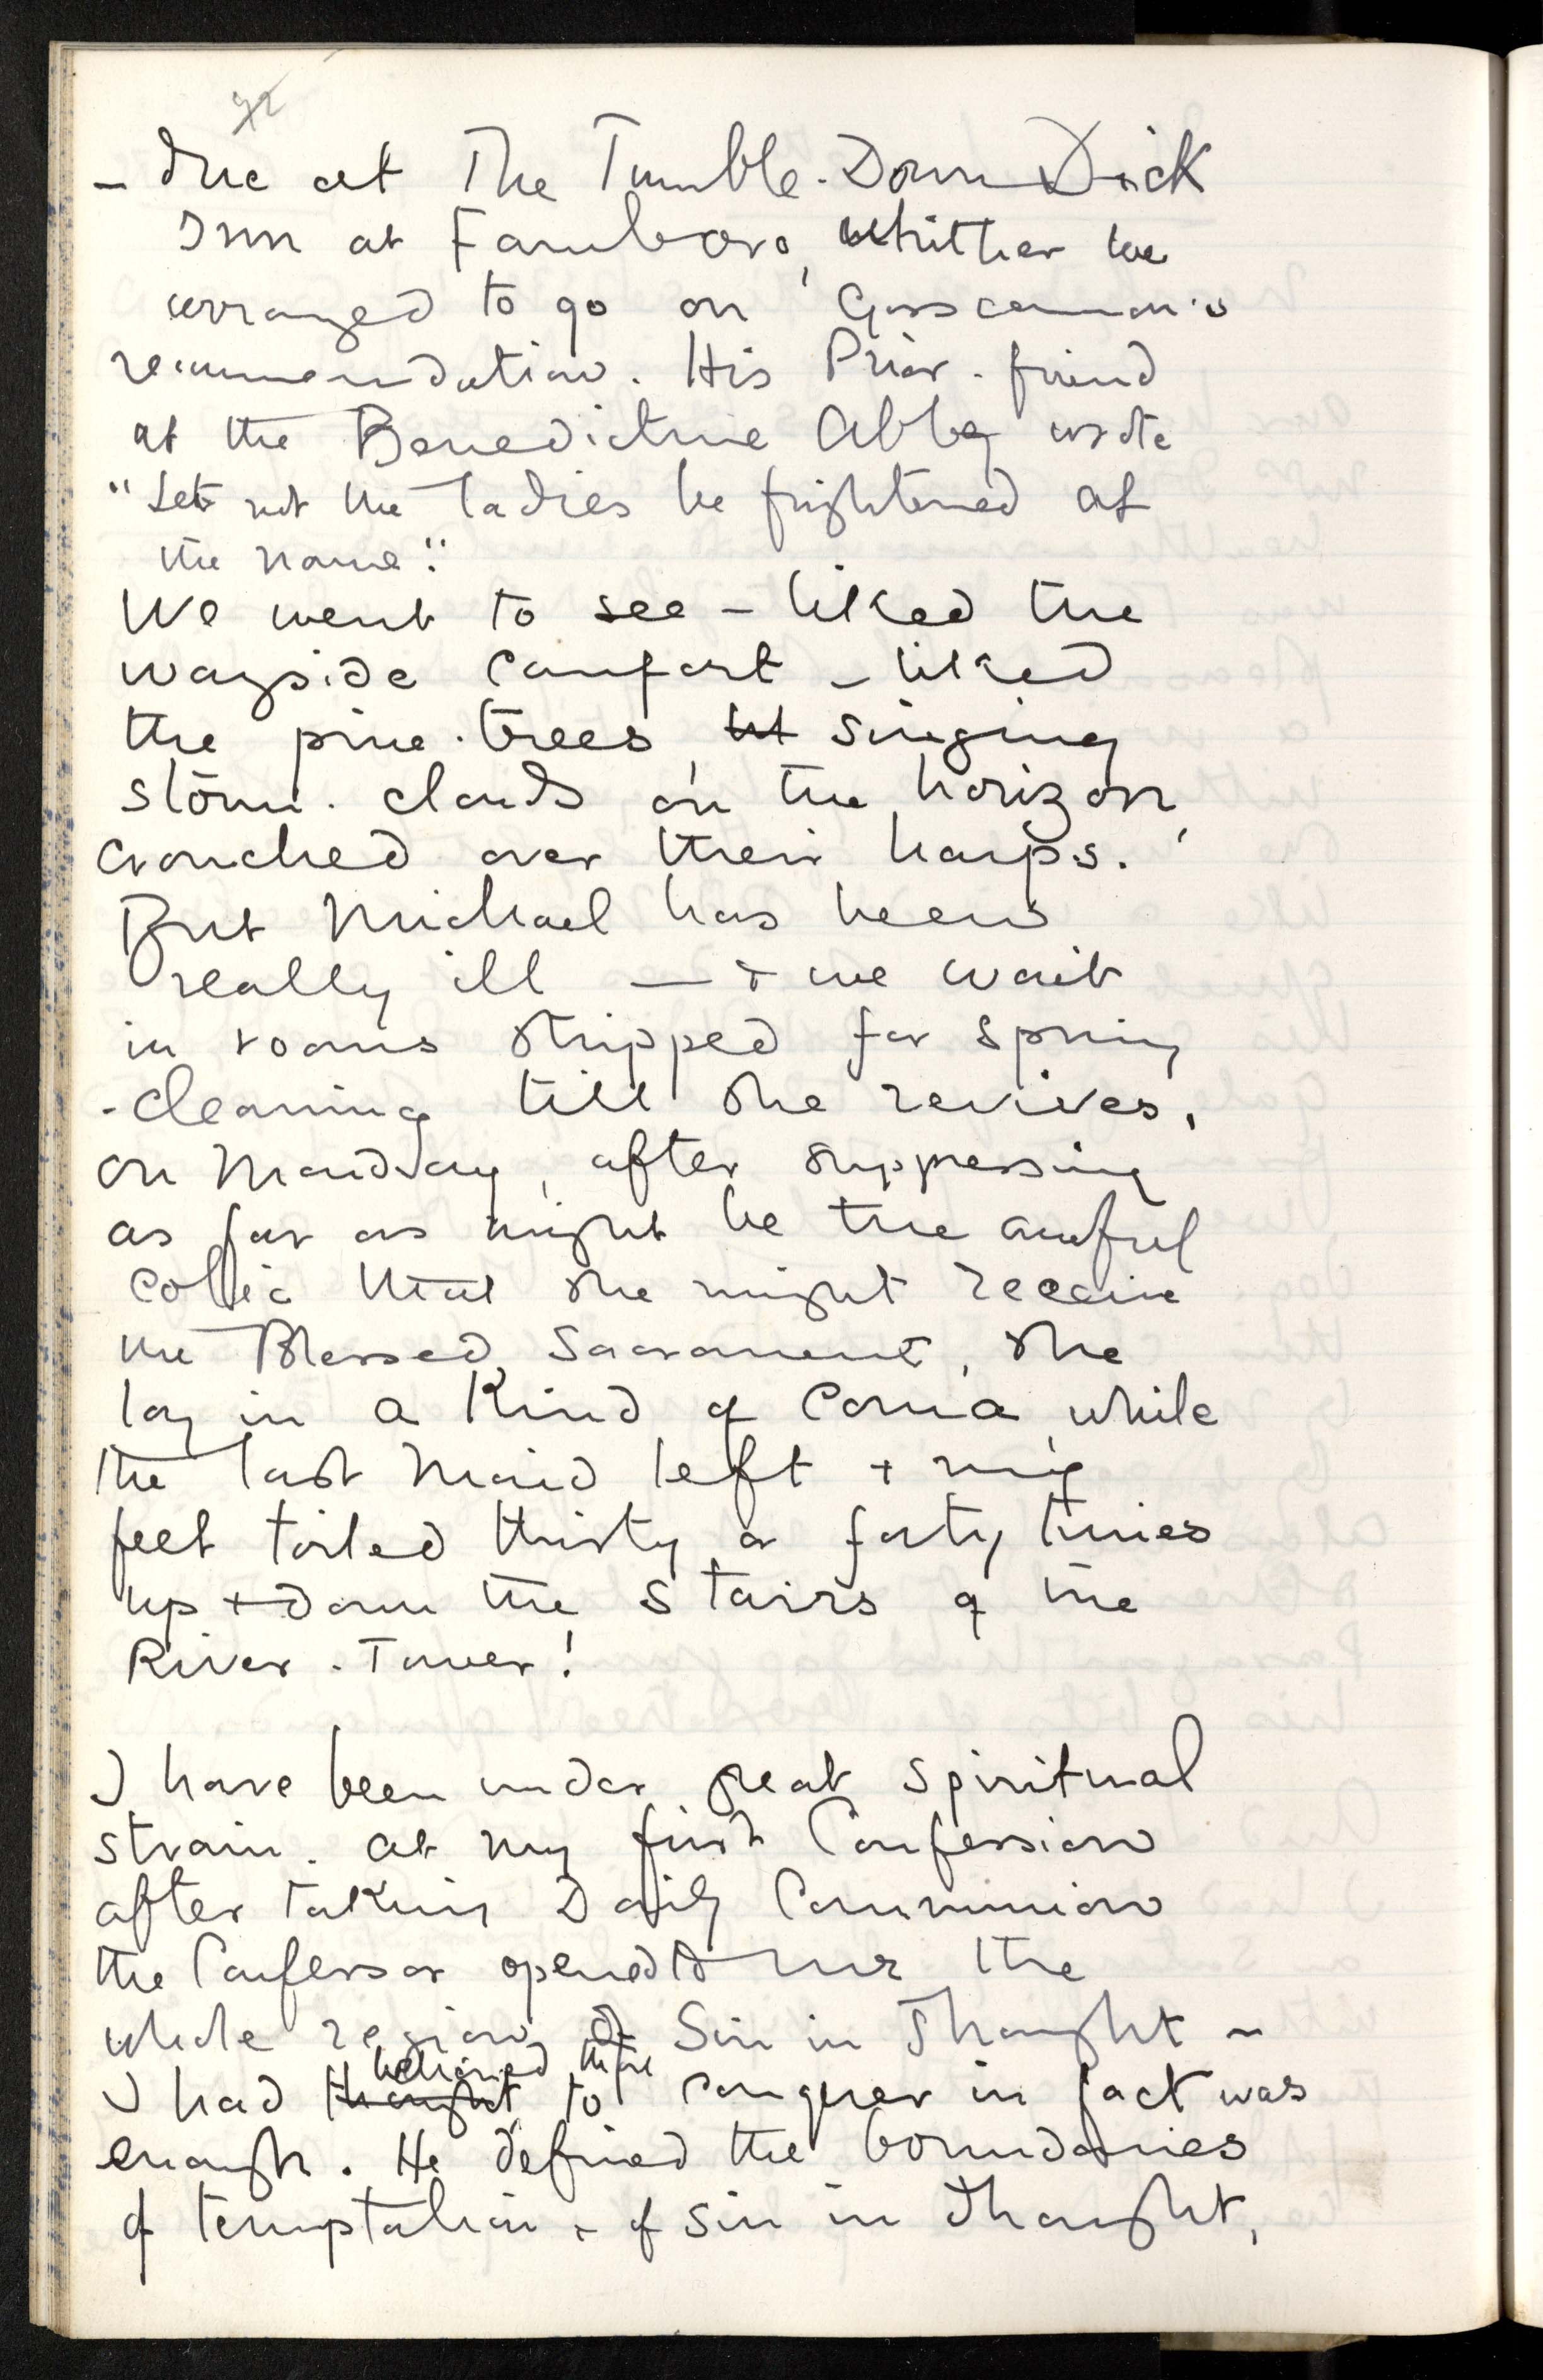 92
- due at The Tumble-Down-Dick
Inn at Farnboro, whither we
arranged to go on Gosscannon's
recommendation. His Prior-friend
at the Benedictine Abbey wrote
"Let not the ladies be frightened at
the name".
We went to see - liked the
wayside comfort - liked
the pine-trees, singing
storm-clouds on the horizon,
crouched over their harps.
But Michael has been
really ill — & we wait
in rooms stripped for spring
-cleaning till she revives.
On Monday, after suppressing
as far as might be the awful
colic that she might receive
the Blessed Sacrament, she
lay in a kind of coma while
the last maid left & my
feet toiled thirty or forty times
up & down the stairs of the
River-Tower!
I have been under great spiritual
strain. At my first Confession
after taking Daily Communion
the Confessor opened to me the
whole regions of Sin in Thought -
believed there
I had thought to conquer in fact was
enough. He defined the boundaries
of temptation & of sin in thought,